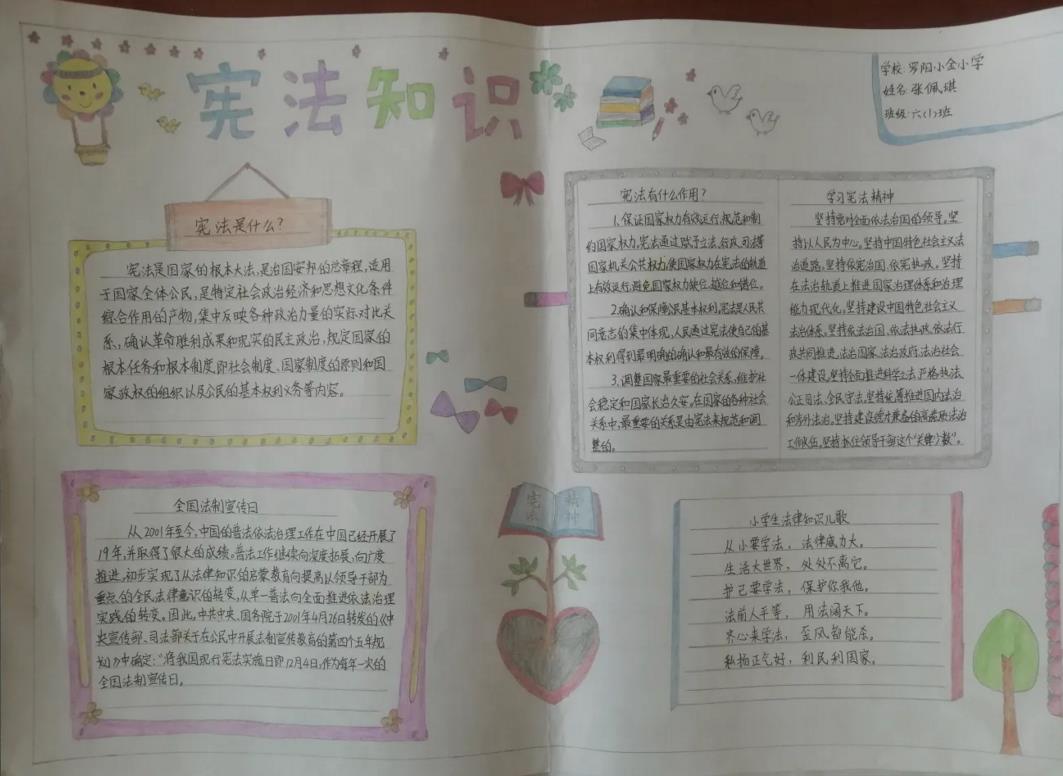 宪法知识
学校:罗阳小金小学
姓名:张佩琪
班级:六(1)班
宪法是什么?
宪法是国家的根本大法,是治国安邦的总章程,适用
于国家全体公民,是特定社会政治经济和思想文化条件
综合作用的产物,集中反映各种政治力量的实际对比关
系,确认革命胜利成果和现实的民主政治,规定国家的
根本任务和根本制度,即社会制度、国家制度的原则和国
家政权的组织以及公民的基本权利义务等内容。
宪法有什么作用?
1.保证国家权力有效运行,规范和制
约国家权力,宪法通过赋予立法、行政、司法等
国家机关公共权力,使国家权力在宪法的轨道
上有效运行,避免国家权力缺位、越位和错位。
2.确认和保障公民基本权利,宪法是人民共
同意志的集中体现,人民通过宪法使自己的基
本权利得到最明确的确认和最有效的保障。
3.调整国家最重要的社会关系,维护社
会稳定和国家长治久安,在国家的各种社会
关系中,最重要的关系是由宪法来规范和调
整的。
学习宪法精神
坚持党对全面依法治国的领导,坚
持以人民为中心,坚持中国特色社会主义法
治道路,坚持依宪治国、依宪执政,坚持
在法治轨道上推进国家治理体系和治理
能力现代化,坚持建设中国特色社会主义
法治体系,坚持依法治国、依法执政、依法行
政共同推进,法治国家、法治政府、法治社会
一体建设,坚持全面推进科学立法、严格执法、
公正司法、全民守法,坚持统筹推进国内法治
和涉外法治,坚持建设德才兼备的高素质法治
工作队伍,坚持抓住领导干部这个“关键少数”。
全国法制宣传日
从2001年至今,中国的普法依法治理工作在中国已经开展了
19年,并取得了很大的成绩,普法工作继续向深度拓展,向广度
推进,初步实现了从法律知识的启蒙教育向提高以领导干部为
重点的全民法律意识的转变,从单一普法向全面推进依法治理
实践的转变。因此,中共中央、国务院于2001年4月26日转发的《中
央宣传部、司法部关于在公民中开展法制宣传教育的第四个五年规
划》中确定:“将我国现行宪法实施日即12月4日,作为每年一次的
全国法制宣传日。
宪法
精神
小学生法律知识儿歌
从小要学法,法律威力大。
生活大世界,处处不离它。
护己要学法,保护你我他。
法前人平等,用法闯天下。
齐心来学法,歪风都能杀。
弘扬正气好,利民利国家。